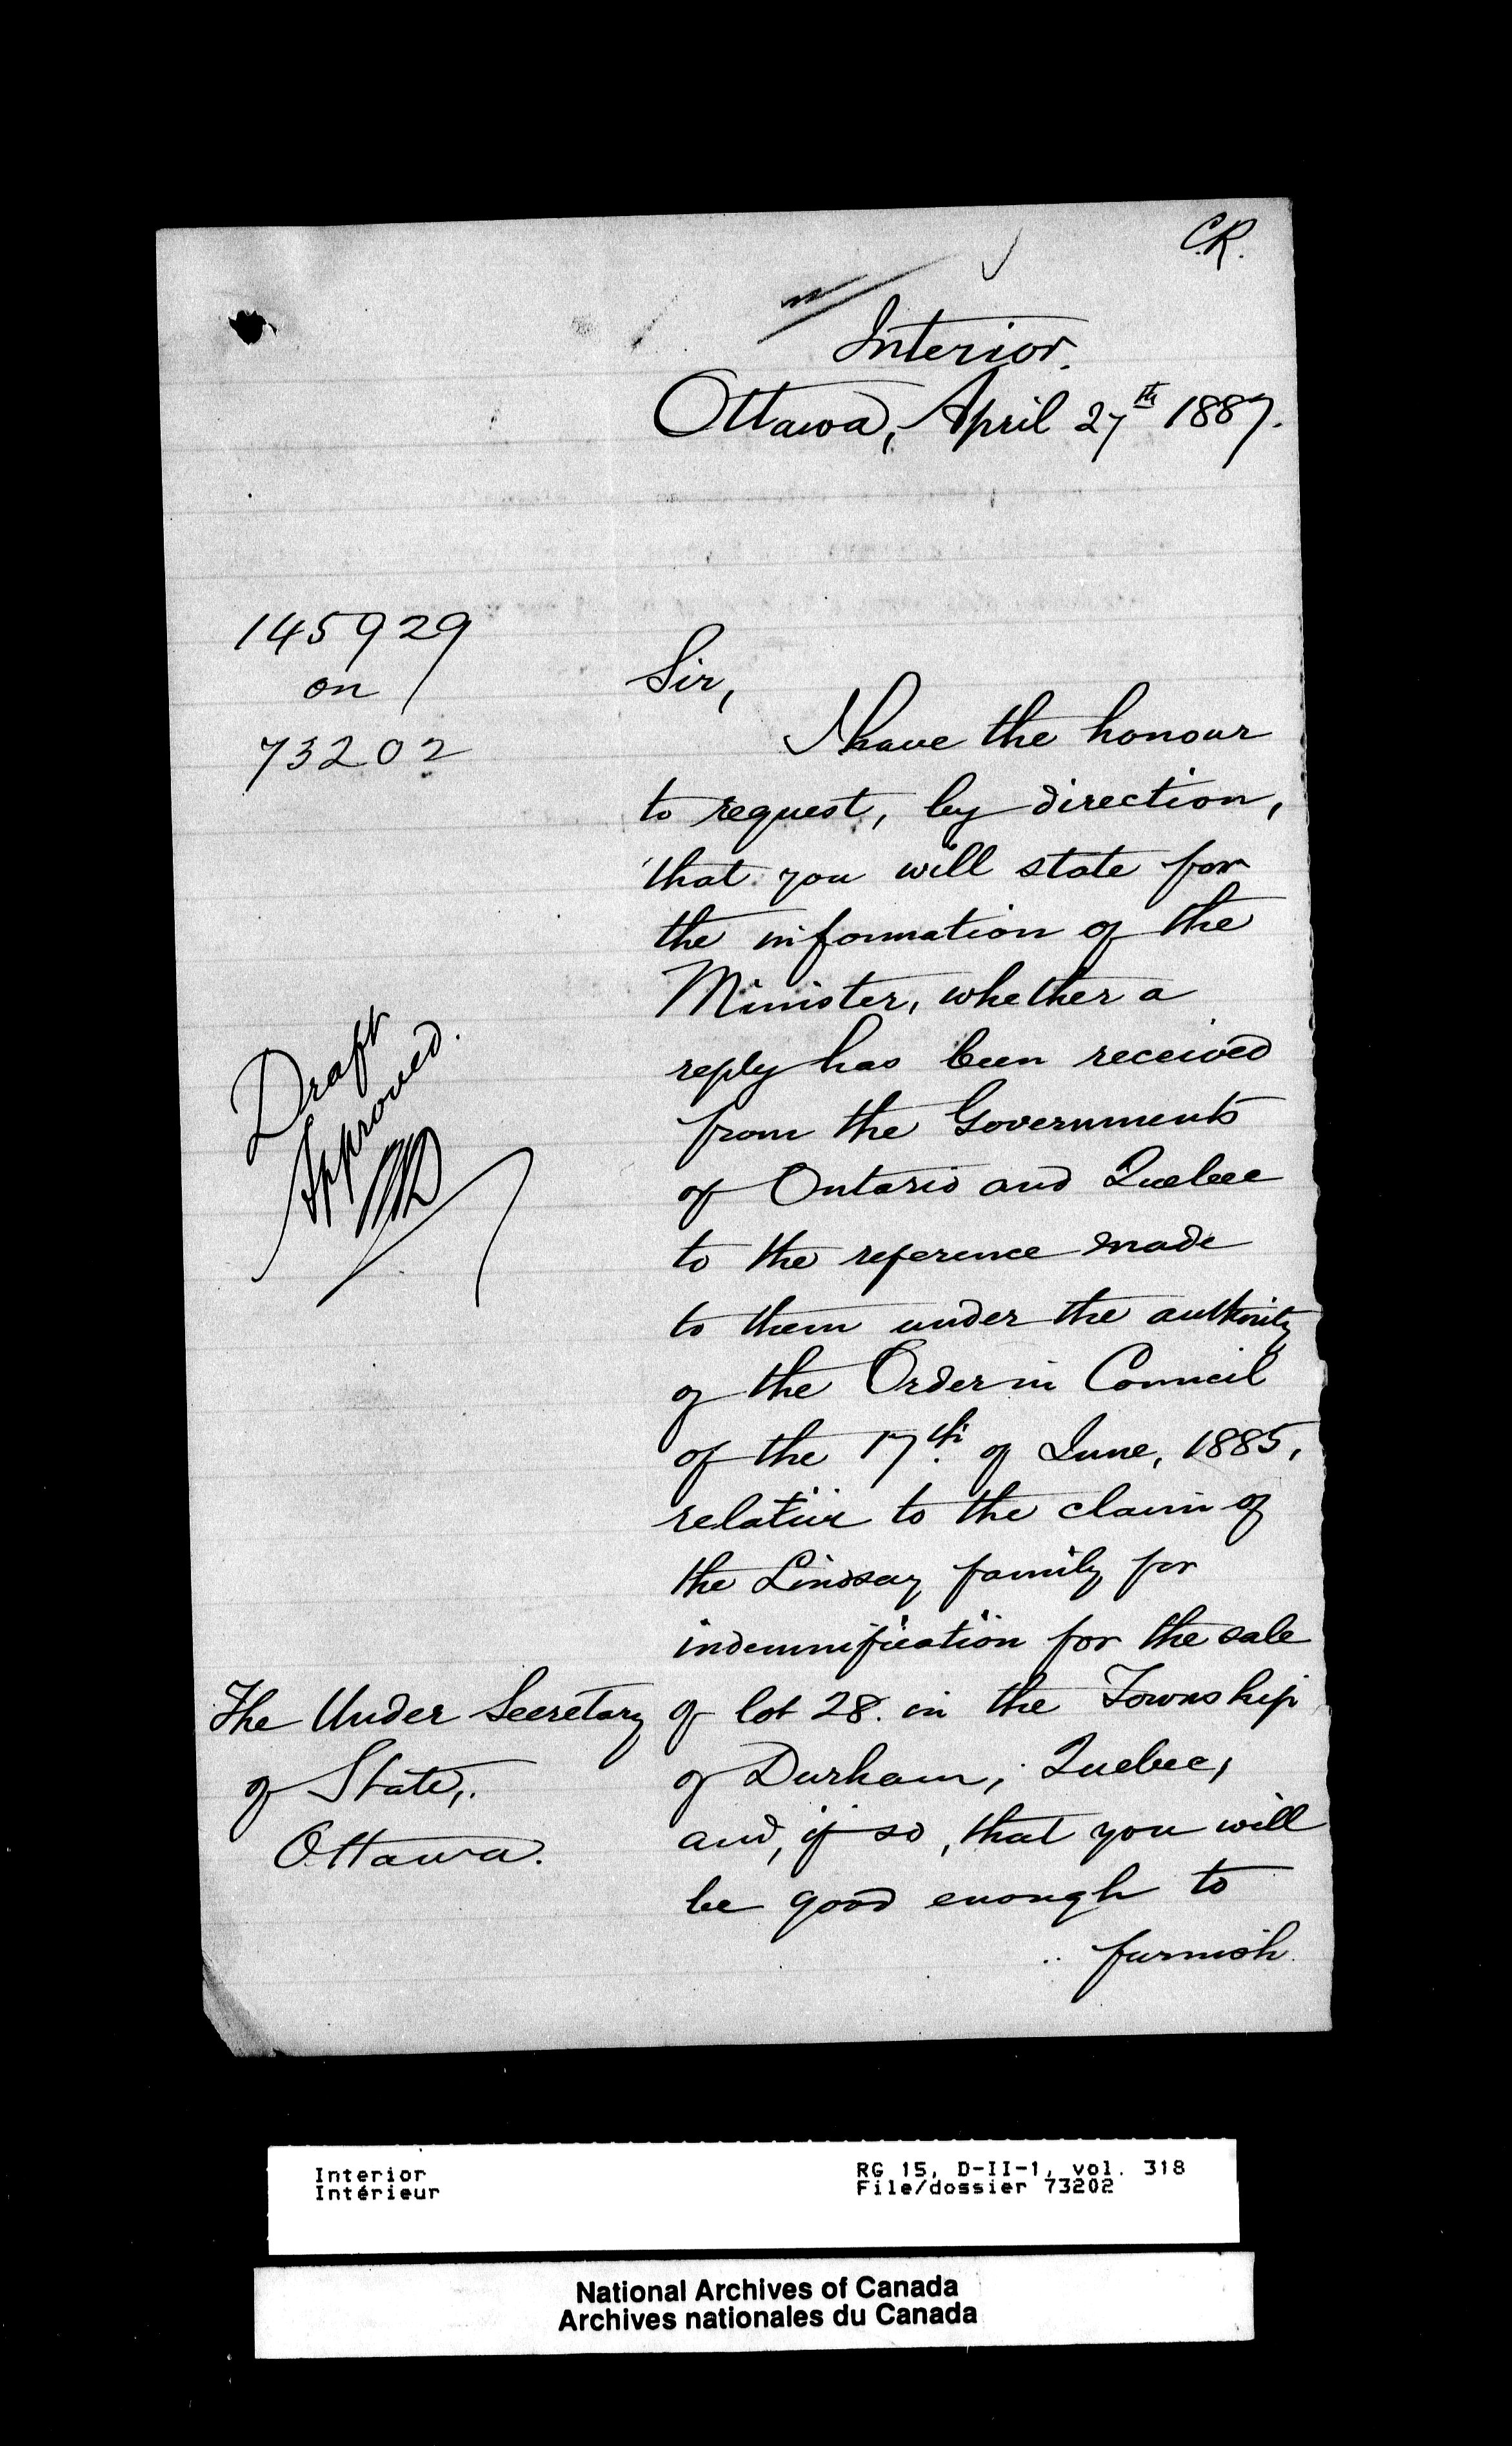 C.R.
Interior.
Ottawa, April 27th 1887.
145929
on
73202
Sir,
I have the honour
to request, by direction,
that you will state for
the information of the
Minister, whether a
reply has been received
from the Governments
of Ontario and Quebec
to the reference made
to them under the authority
of the Order in Council
of the 17th. of June, 1885,
relative to the claim of
the Lindsay family for
indemnification for the sale
of lot 28. in the Township
of Durham, Quebec,
and, if so, that you will
be good enough to
furnish
Draft
Approved.
The Under Secretary
of State,
Ottawa.
Interior
Intérieur
RG 15, D-II-1, vol. 318
File/dossier 73202
National Archives of Canada
Archives nationales du Canada